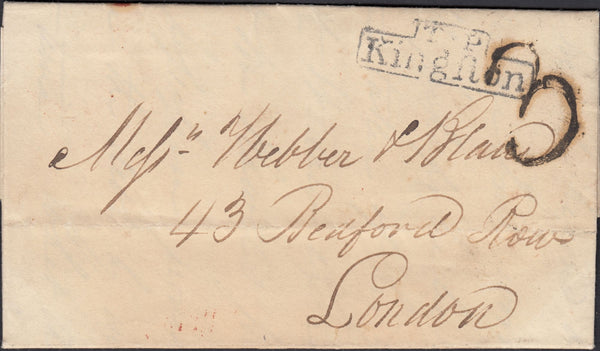 T.P
Kingston
3
Messrs Webber & Bland
43 Bedford Row
London